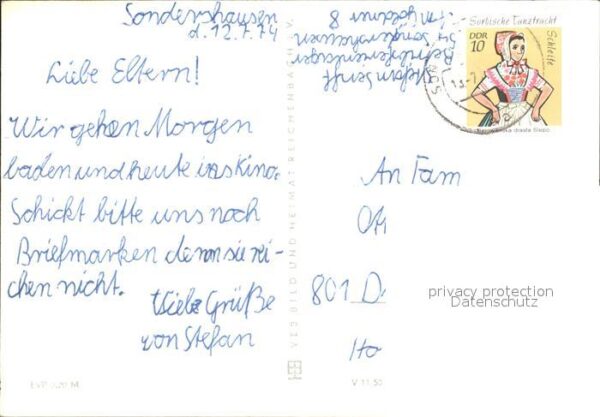 Sondershausen
d. 12.7.74
Liebe Eltern!
Wir gehen Morgen
baden und heute ins Kino.
Schickt bitte uns noch
Briefmarken denn sie rei-
chen nicht.
Liebe Grüße
von Stefan
Stefan
54 Sondershausen
8
Sorbische Tanztracht
DDR
10
Schleife
VEB BILD UND HEIMAT REICHENBACH i. V.
An Fam
Ott
801 D
Ho
privacy protection
Datenschutz
EVP 0,20 M
V 11 50